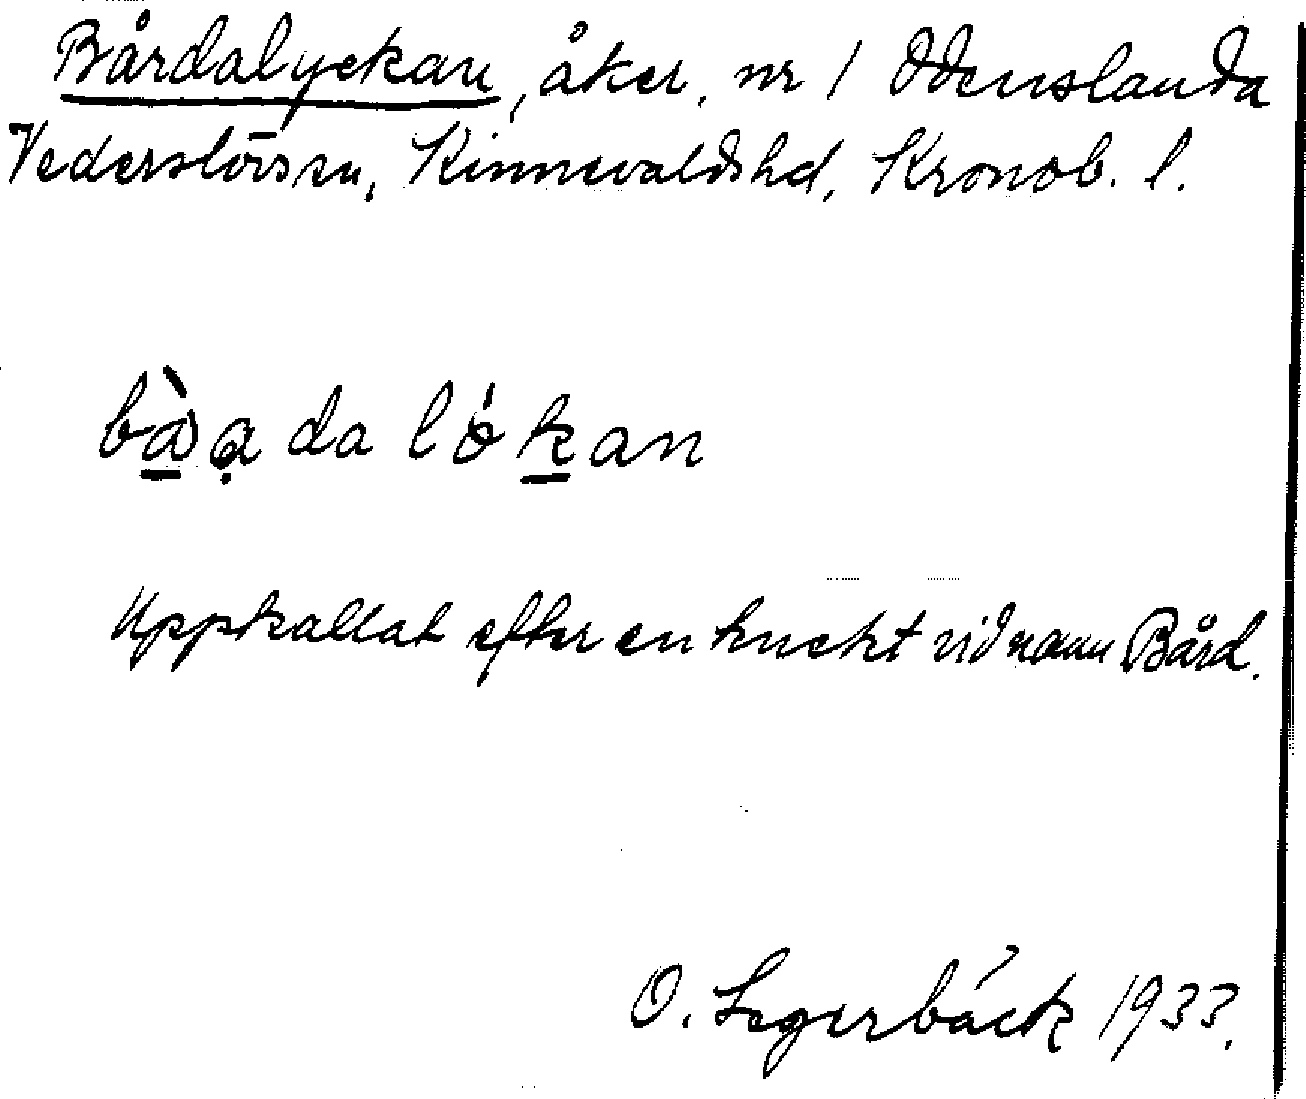 Bårdalyckan, åker, nr 1 Odenslanda
Vederslövs sn, Kinnevalds hd, Kronob. l.
bàa̤ da lókan
Uppkallat efter en knekt vid namn Bård.
O. Segerbäck 1933.